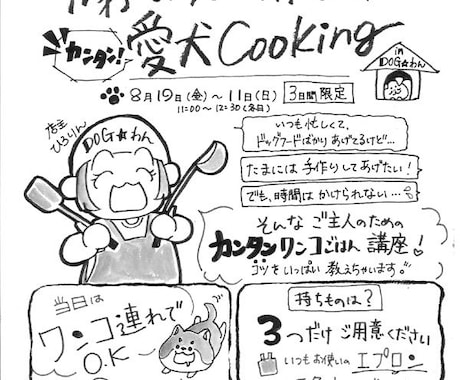 カンタン!
愛犬Cooking
in
DOG☆わん
8月19日(金)~11日(日)
3日間限定
11:00~12:30(各日)
店主
ひろりん
DOG☆わん
いつも忙しくて、
ドッグフードばかりあげてるけど…
たまには手作りしてあげたい!
でも、時間はかけられない…
そんなご主人のための
カンタンワンコごはん講座!
コツをいっぱい教えちゃいます。
当日は
ワンコ連れで
O.K
持ちものは?
3つだけご用意ください
いつもお使いのエプロン